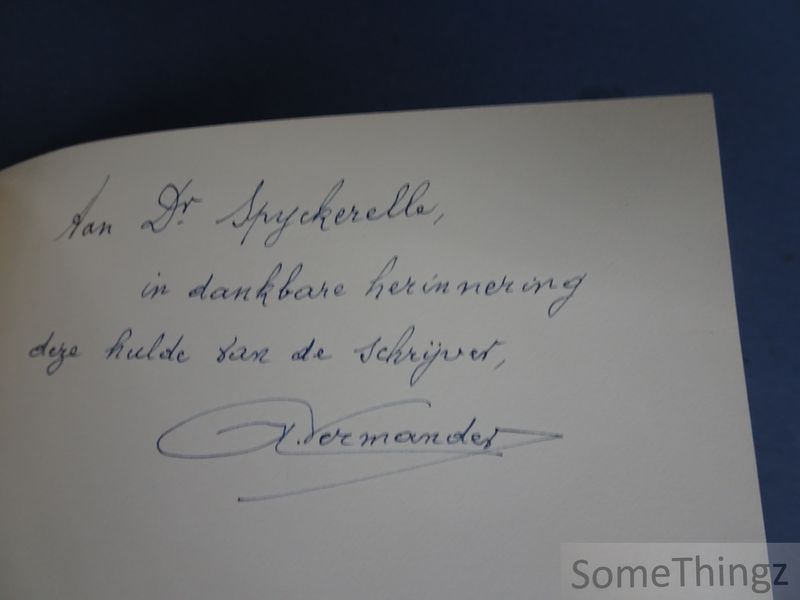 Aan Dr. Spyckerelle,
in dankbare herinnering
deze hulde van de schrijver,
Vermander
SomeThingz